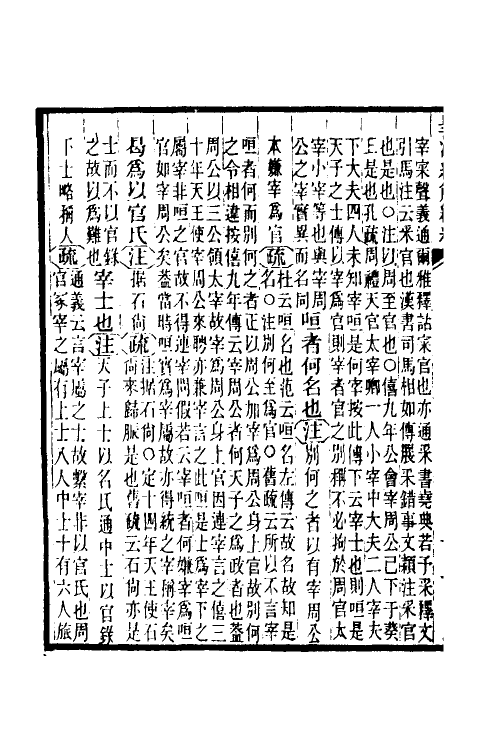 宰寀聲義通爾雅釋詁寀官也亦通采書堯典若予采釋文
引馬注云采官也漢書司馬相如傳展采錯事文穎注采官
也是也○注以周至官也○僖九年公會宰周公已下于葵
丘是也孔疏周禮天官太宰卿一人小宰中大夫二人宰夫
下大夫四人未知宰咺是何宰按此傳下云宰士也則咺是
天子之士傳以宰爲官則宰者官之別稱不必拘於周官太
宰小宰等也與宰周
公之宰實異而名同
咺者何名也注別何之者以有宰周公
本嫌宰爲官疏杜云咺名也范云咺名左傳云故名故知是
名○注別何至爲官○舊疏云所以不言宰
咺者何而別何之者正以周公加宰爲周公身上官故別何
之令相違按僖九年傳云宰周公者何天子之爲政者也葢
周公以三公領太宰故宰爲周公身上官因連宰言之僖三
十年天王使宰周公來聘亦兼宰言之此咺是士爲宰下之
屬宰非咺之官故不得連宰問假若云宰咺者何嫌宰爲咺
官如宰周公矣葢當時咺實爲宰屬故亦得統之宰稱宰矣
曷爲以官氏注据石尚疏注据石尚○定十四年天王使石
尚來歸脤是也舊疏云石尚亦是
士而不以官錄
之故以爲難也
宰士也注天子上士以名氏通中士以官錄
下士略稱人疏通義云言宰屬之士故繫宰非以官氏也周
官冢宰之屬有上士八人中士十有六人旅